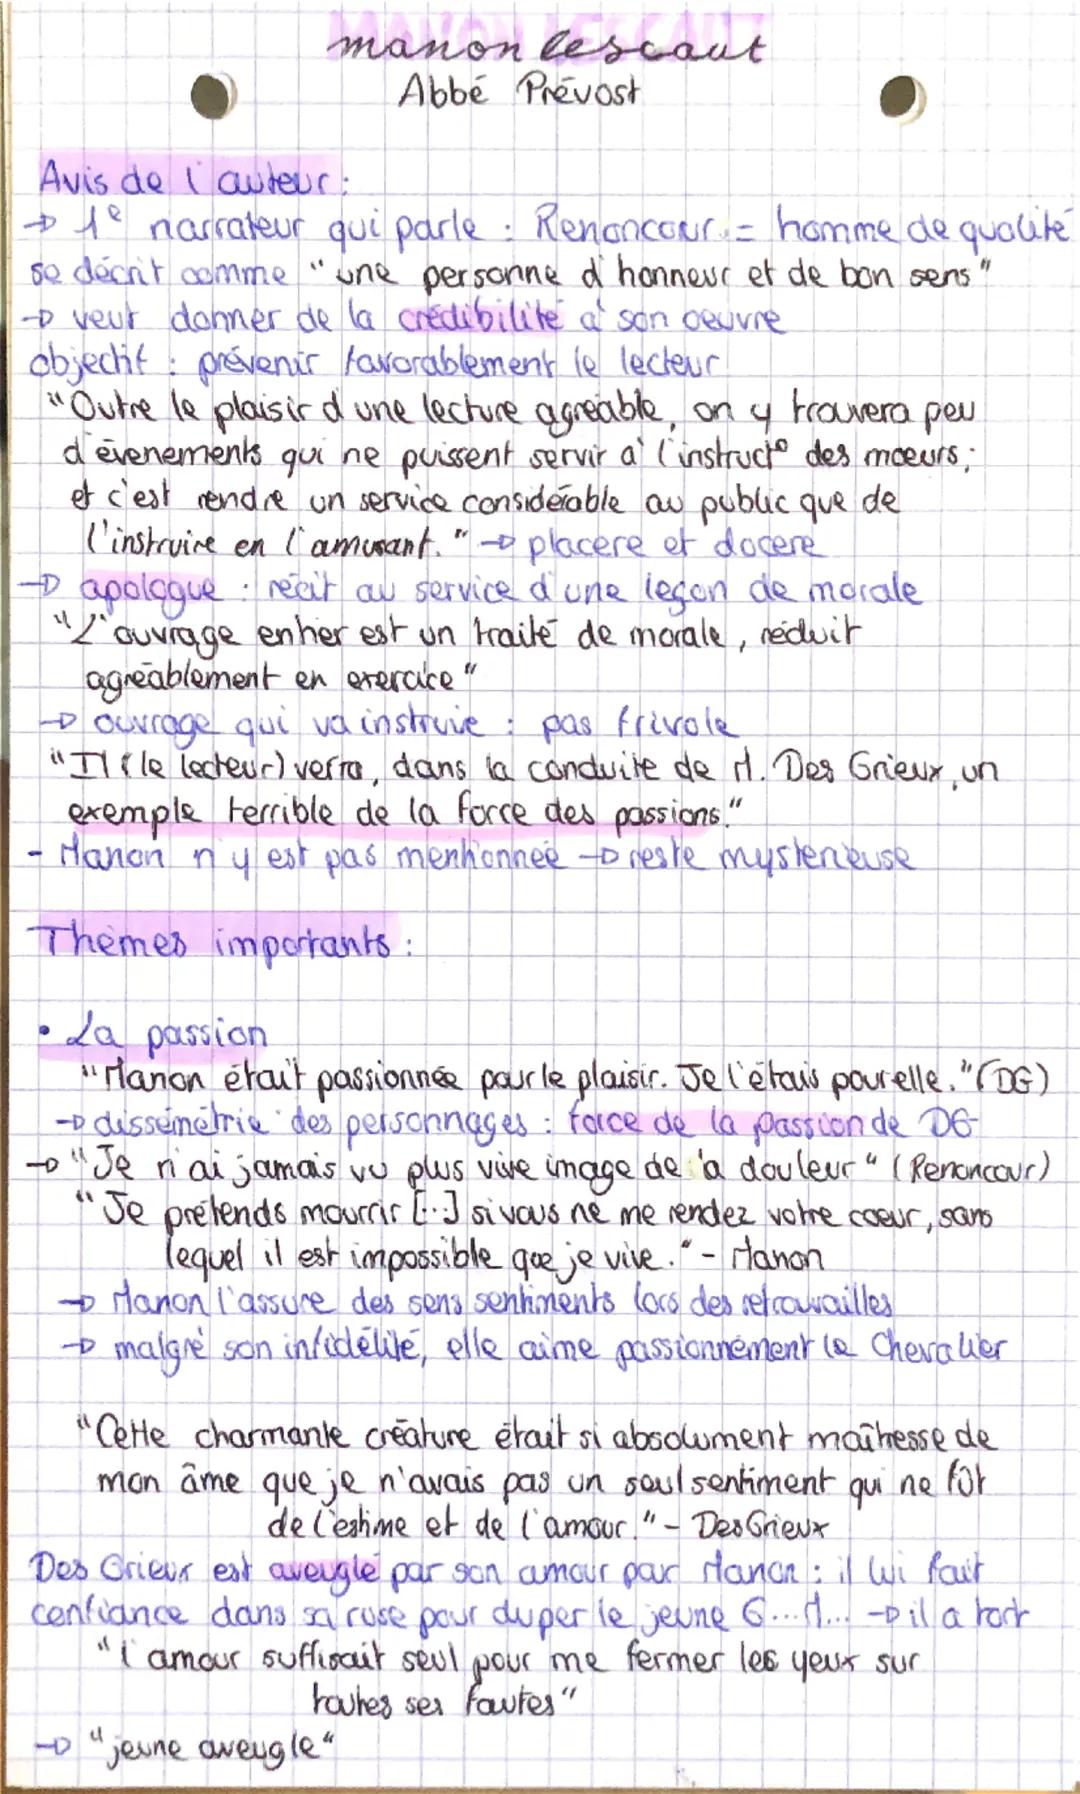 manon lescaut
Abbé Prévost
Avis de l'auteur :
→ 1e narrateur qui parle : Renoncour = homme de qualité
se décrit comme "une personne d'honneur et de bon sens"
→ veut donner de la crédibilité à son oeuvre
objectif : prévenir favorablement le lecteur
"Outre le plaisir d'une lecture agréable, on y trouvera peu
d'évenements qui ne puissent servir à l'instruct° des mœurs ;
et c'est rendre un service considérable au public que de
l'instruire en l'amusant." → placere et docere
→ apologue : récit au service d'une leçon de morale
"L'ouvrage entier est un traité de morale, réduit
agréablement en exercice"
→ ouvrage qui va instruire : pas frivole
"Il (le lecteur) verra, dans la conduite de M. Des Grieux, un
exemple terrible de la force des passions."
- Manon n'y est pas mentionnée → reste mystérieuse
Thèmes importants :
• La passion
"Manon était passionnée pour le plaisir. Je l'étais pour elle." (DG)
→ dissémétrie des personnages : force de la passion de DG
→ "Je n'ai jamais vu plus vive image de la douleur" (Renoncour)
"Je prétends mourrir [...] si vous ne me rendez votre coeur, sans
lequel il est impossible que je vive." - Manon
→ Manon l'assure des sens sentiments lors des retrouvailles
→ malgré son infidélité, elle aime passionnément le Chevalier
"Cette charmante créature était si absolument maîtresse de
mon âme que je n'avais pas un seul sentiment qui ne fût
de l'estime et de l'amour." - Des Grieux
Des Grieux est aveuglé par son amour par Manon : il lui fait
confiance dans sa ruse pour duper le jeune G...M... → il a tort
"l'amour suffisait seul pour me fermer les yeux sur
toutes ses fautes"
→ "jeune aveugle"